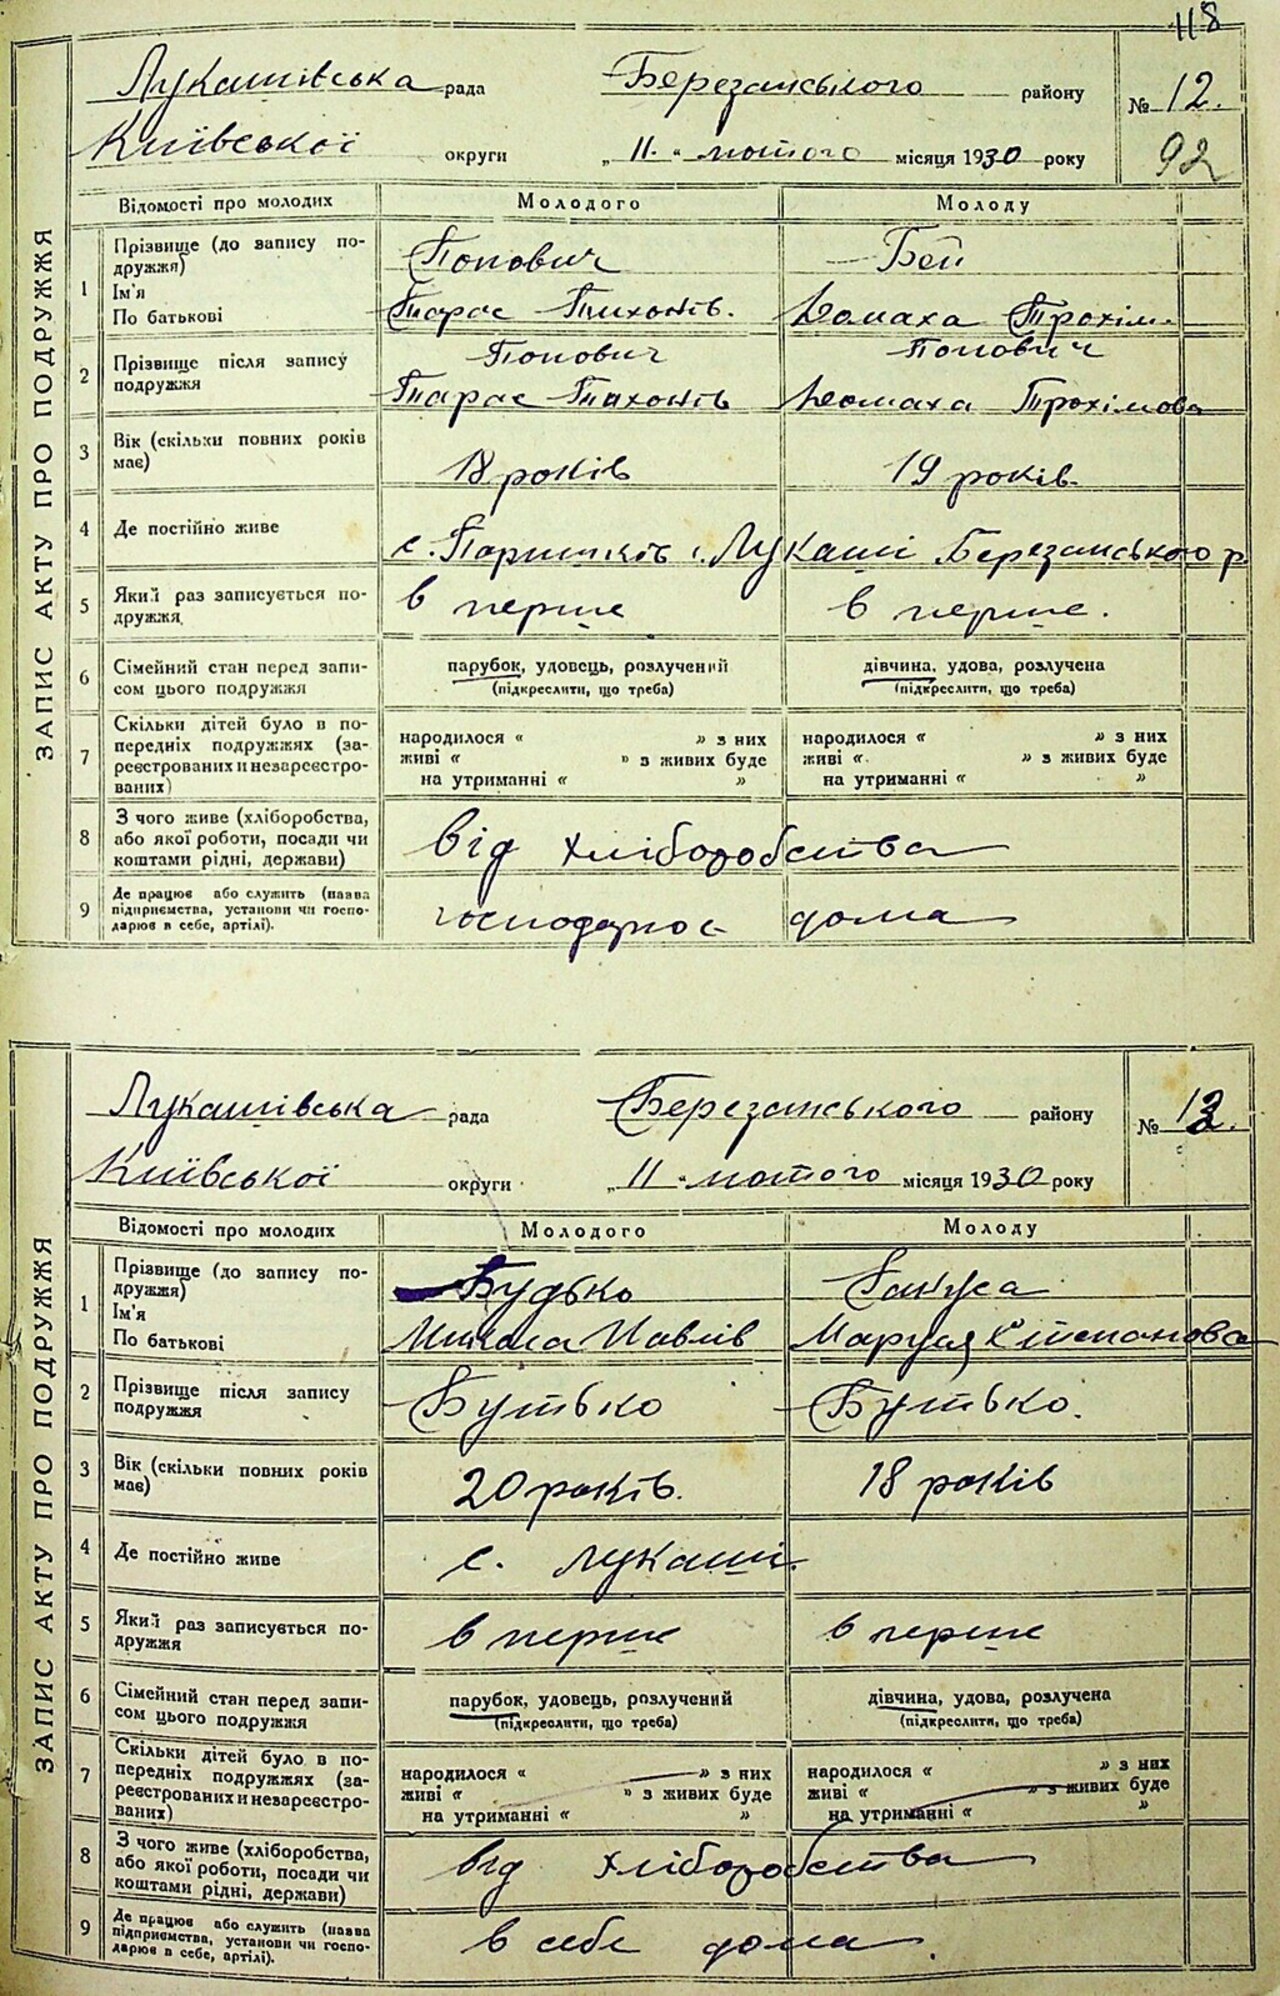 118
Лукашівська рада Березанського району № 12.
Київської округи „11.“ лютого місяця 1930 року 92
ЗАПИС АКТУ ПРО ПОДРУЖЖЯ
Відомості про молодих Молодого Молоду
1 Прізвище (до запису по-
дружжя) Попович Бей
Ім'я
По батькові Тарас Тихонів. Домаха Трохім.
2 Прізвище після запису Попович Попович
подружжя Тарас Тихонів Домаха Трохімова
3 Вік (скільки повних років
має) 18 років 19 років.
4 Де постійно живе с. Паришків с. Лукаші Березанського р.
5 Який раз записується по-
дружжя в перше в перше.
6 Сімейний стан перед запи- парубок, удовець, розлучений дівчина, удова, розлучена
сом цього подружжя (підкреслити, що треба) (підкреслити, що треба)
7 Скільки дітей було в по-
передніх подружжях (за-
реєстрованих и незареєстро-
ваних)
народилося « » з них народилося « » з них
живі « » з живих буде живі « » з живих буде
на утриманні « » на утриманні « »
8 З чого живе (хліборобства,
або якої роботи, посади чи
коштами рідні, держави) від хліборобства
9 Де працює або служить (назва
підприємства, установи чи госпо-
дарює в себе, артілі). дома
Лукашівська рада Березанського району № 13.
Київської округи „11“ лютого місяця 1930 року
ЗАПИС АКТУ ПРО ПОДРУЖЖЯ
Відомості про молодих Молодого Молоду
1 Прізвище (до запису по-
дружжя) Будько
Ім'я
По батькові Микола Павлів Маруся Степанова
2 Прізвище після запису
подружжя Бутько Бутько.
3 Вік (скільки повних років
має) 20 років. 18 років
4 Де постійно живе с. Лукаші.
5 Який раз записується по-
дружжя в перше в перше
6 Сімейний стан перед запи- парубок, удовець, розлучений дівчина, удова, розлучена
сом цього подружжя (підкреслити, що треба) (підкреслити, що треба)
7 Скільки дітей було в по-
передніх подружжях (за-
реєстрованих и незареєстро-
ваних)
народилося « » з них народилося « » з них
живі « » з живих буде живі « » з живих буде
на утриманні « » на утриманні « »
8 З чого живе (хліборобства,
або якої роботи, посади чи
коштами рідні, держави) від хліборобства
9 Де працює або служить (назва
підприємства, установи чи госпо-
дарює в себе, артілі). в себе дома.